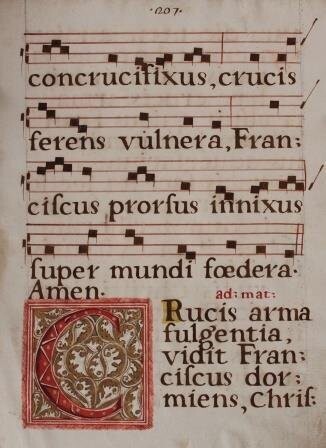 ·1207·
concrucifixus, crucis
ferens vulnera, Fran:
ciſcus prorſus innixus
ſuper mundi fœdera.
Amen.
ad: mat:
CRucis arma
fulgentia,
vidit Fran:
ciſcus dor:
miens, Chriſ: